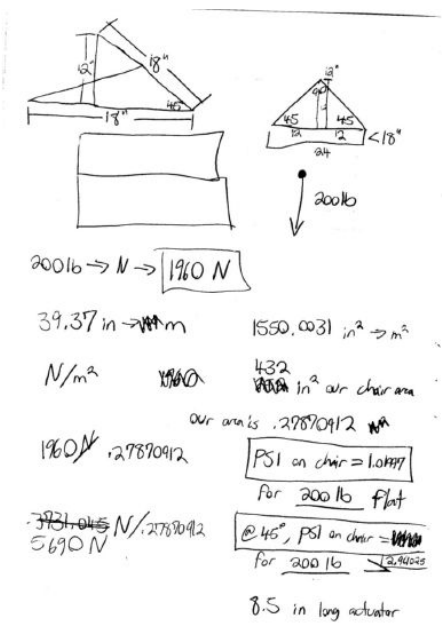 12"
18"
45°
18"
12"
90
45
45
12
12
24
<18"
200lb
200lb → N → 1960 N
39.37 in → m
1550.0031 in² → m²
N/m²
432
in² our chair area
our area is .27870912
1960N/.27870912
PSI on chair = 1.01997
for 200 lb flat
5690 N
N/.27870912
@ 45°, PSI on chair =
for 200 lb
8.5 in long actuator